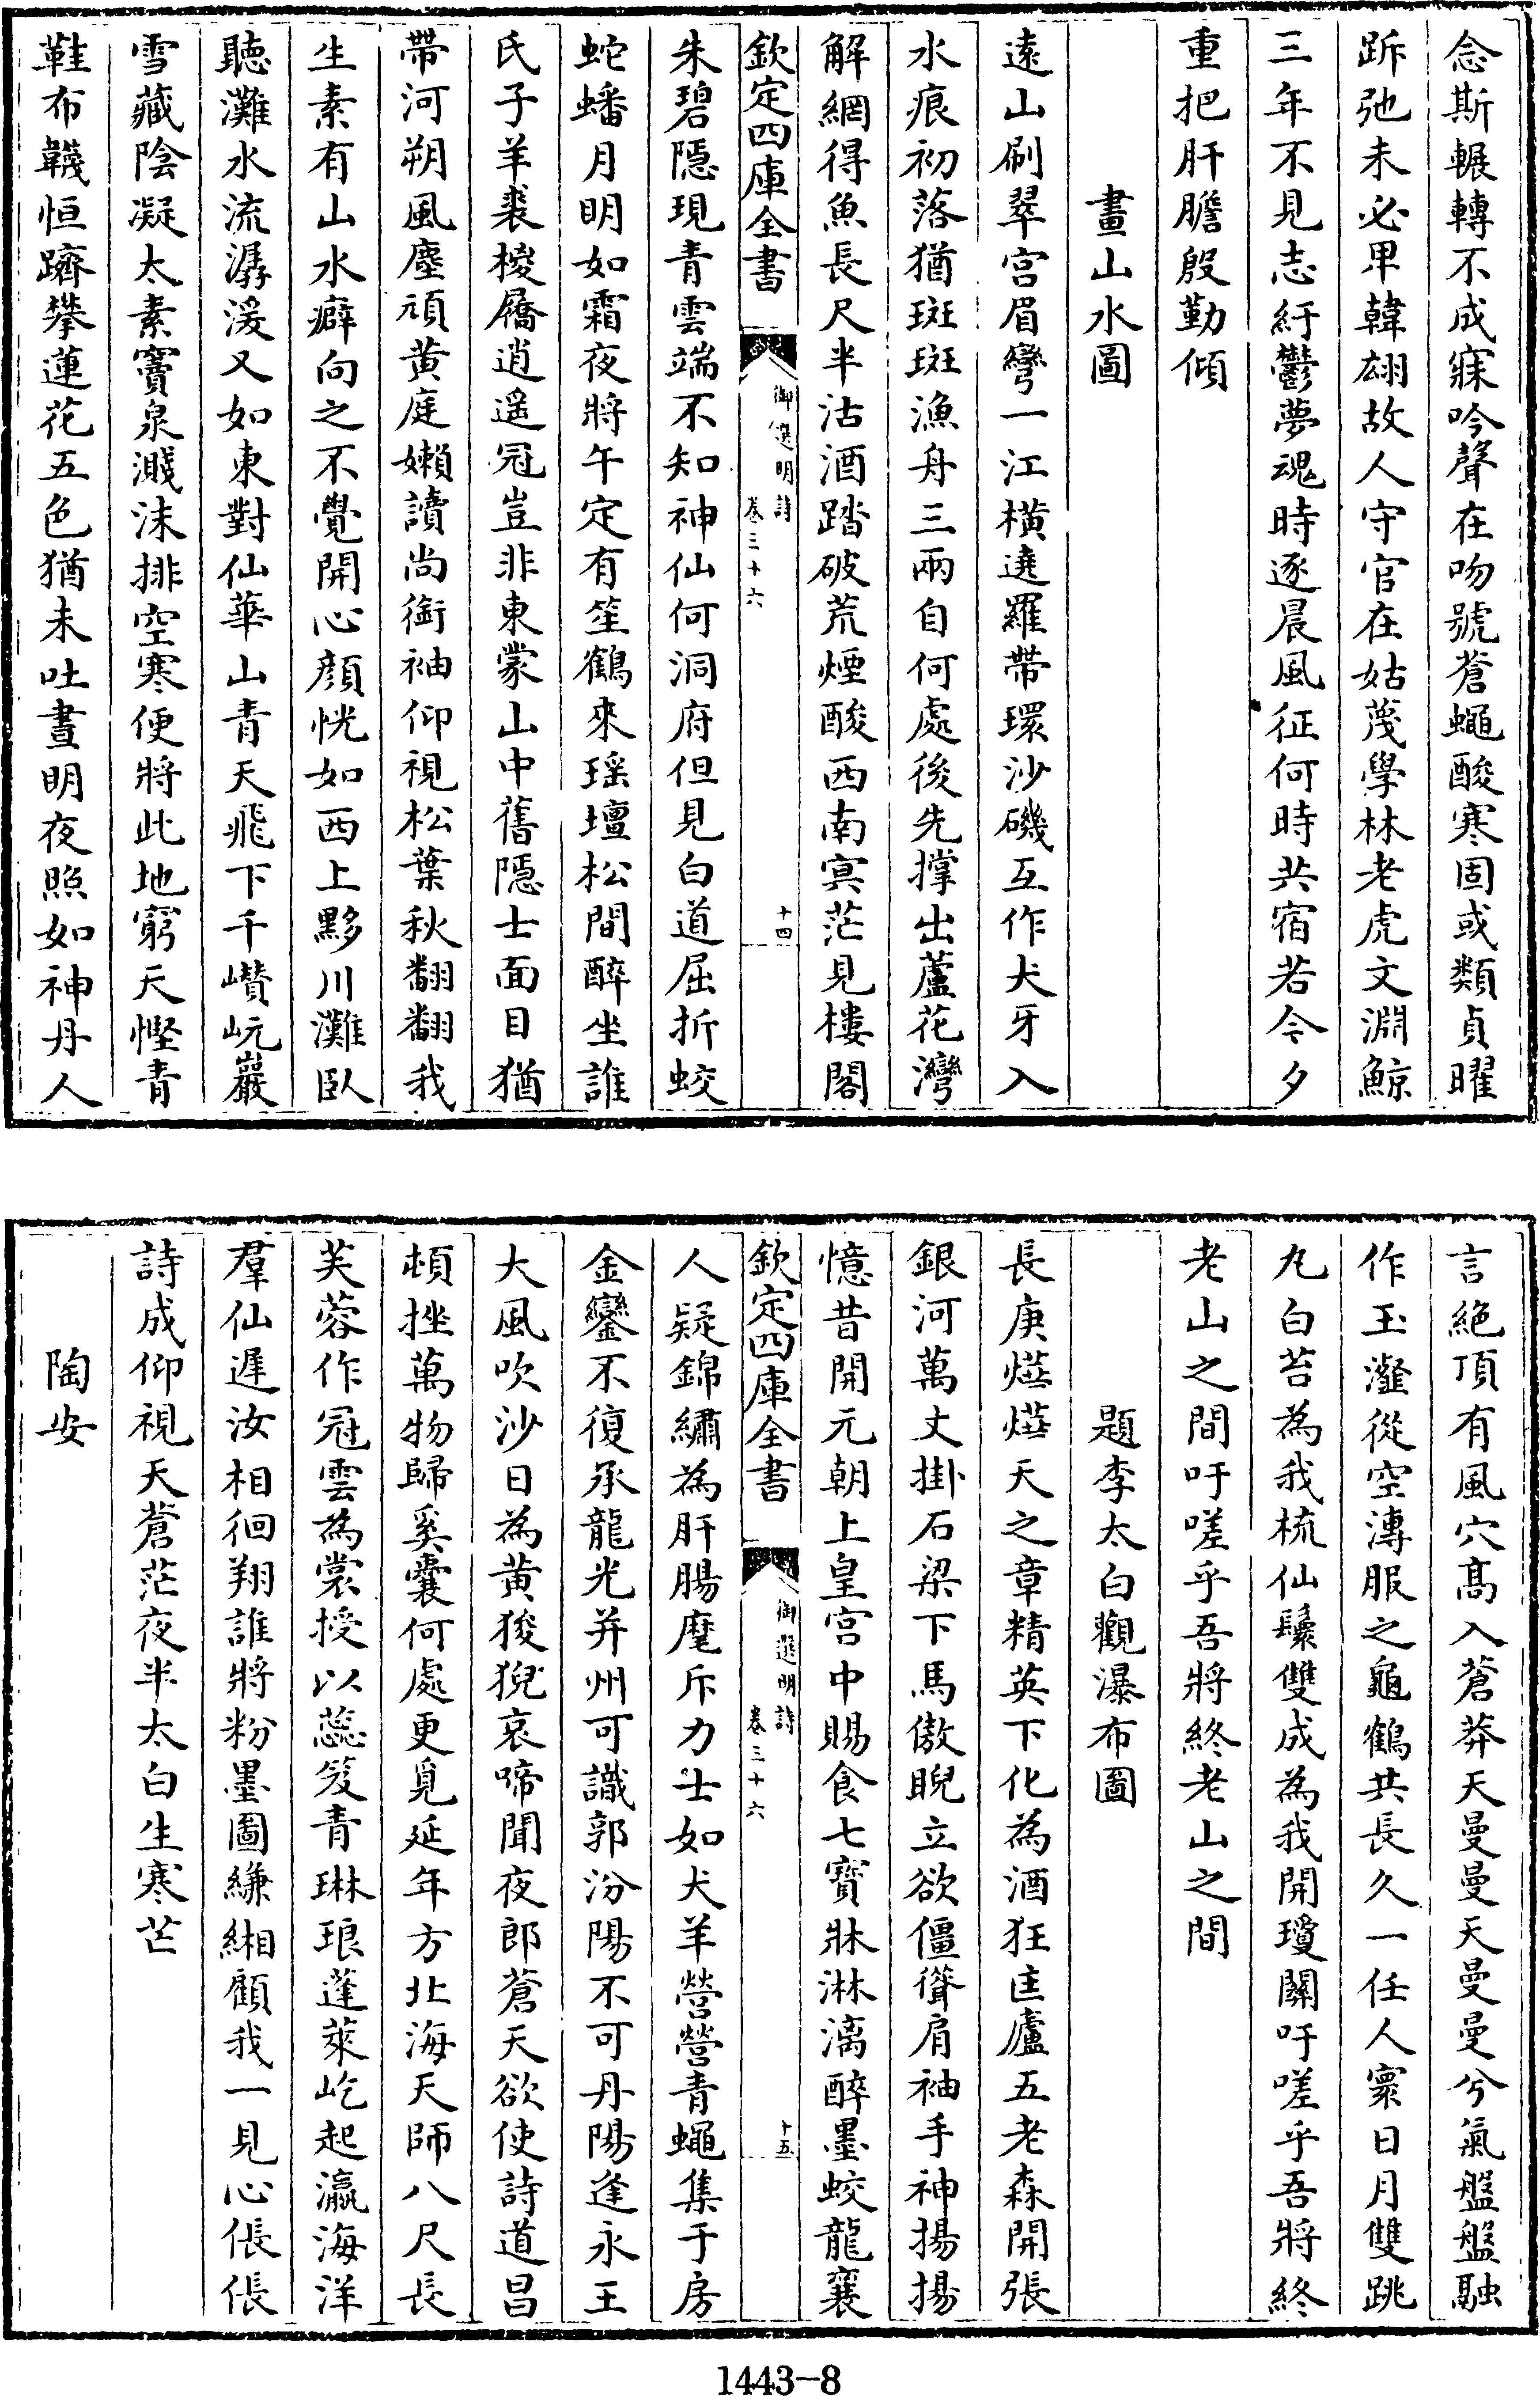 念斯輾轉不成寐吟聲在吻號蒼蠅酸寒固或類貞曜
跅弛未必卑韓翃故人守官在姑蔑學林老虎文淵鯨
三年不見志紆鬱夢魂時逐晨風征何時共宿若今夕
重把肝膽殷勤傾
畫山水圖
遠山刷翠宫眉彎一江橫遶羅帶環沙磯互作犬牙入
水痕初落猶斑斑漁舟三兩自何處後先撑出蘆花灣
解網得魚長尺半沽酒踏破荒煙酸西南㝠茫見樓閣
欽定四庫全書
御選明詩
卷三十六
十四
朱碧隱現青雲端不知神仙何洞府但見白道屈折蛟
蛇蟠月明如霜夜將午定有笙鶴來瑶壇松間醉坐誰
氏子羊裘椶屩逍遥冠豈非東蒙山中舊隱士面目猶
帶河朔風塵頑黄庭嬾讀尚銜袖仰視松葉秋翻翻我
生素有山水癖向之不覺開心顔恍如西上黟川灘臥
聽灘水流潺湲又如東對仙華山青天飛下千巑岏巖
雪藏陰凝太素竇泉濺沫排空寒便將此地窮天慳青
鞋布韈恒躋攀蓮花五色猶未吐晝明夜照如神丹人
言絶頂有風穴髙入蒼莽天曼曼天曼曼兮氣盤盤融
作玉瀣從空漙服之龜鶴共長久一任人寰日月雙跳
丸白苔為我梳仙鬟雙成為我開瓊關吁嗟乎吾將終
老山之間吁嗟乎吾將終老山之間
題李太白觀瀑布圖
長庚燁燁天之章精英下化為酒狂匡廬五老森開張
銀河萬丈掛石梁下馬傲睨立欲僵聳肩袖手神揚揚
憶昔開元朝上皇宫中賜食七寳牀淋漓醉墨蛟龍襄
欽定四庫全書
御選明詩
卷三十六
十五
人疑錦繡為肝腸麾斥力士如犬羊營營青蠅集于房
金鑾不復承龍光并州可識郭汾陽不可丹陽逢永王
大風吹沙日為黄狻猊哀啼聞夜郎蒼天欲使詩道昌
頓挫萬物歸奚囊何處更覓延年方北海天師八尺長
芙蓉作冠雲為裳授以蕊笈青琳琅蓬萊屹起瀛海洋
羣仙遲汝相徊翔誰將粉墨圖縑緗顧我一見心倀倀
詩成仰視天蒼茫夜半太白生寒芒
陶安
1443-8